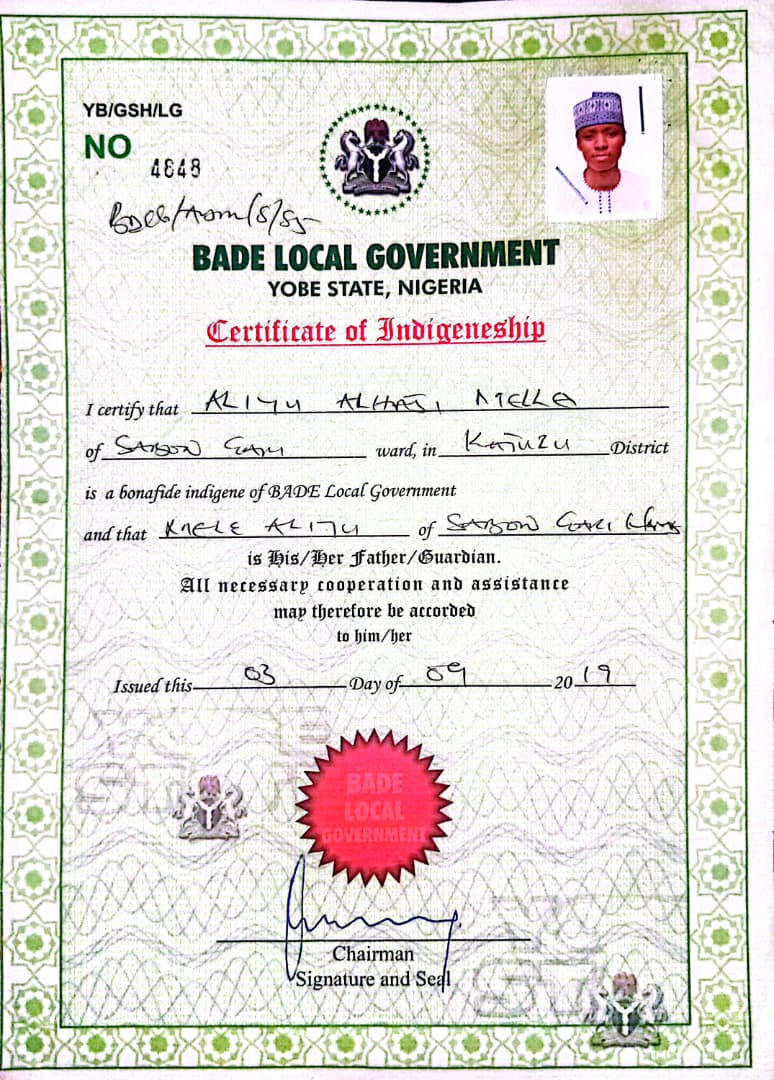 YB/GSH/LG
NO 4848
BADE LOCAL GOVERNMENT
YOBE STATE, NIGERIA
Certificate of Indigeneship
I certify that ALIYU ALHAJI
of SABON GARI ward, in KATUZU District
is a bonafide indigene of BADE Local Government
and that ALIYU of SABON GARI
is His/Her Father/Guardian.
All necessary cooperation and assistance
may therefore be accorded
to him/her
Issued this 03 Day of 09 2019
BADE
LOCAL
GOVERNMENT
Chairman
Signature and Seal